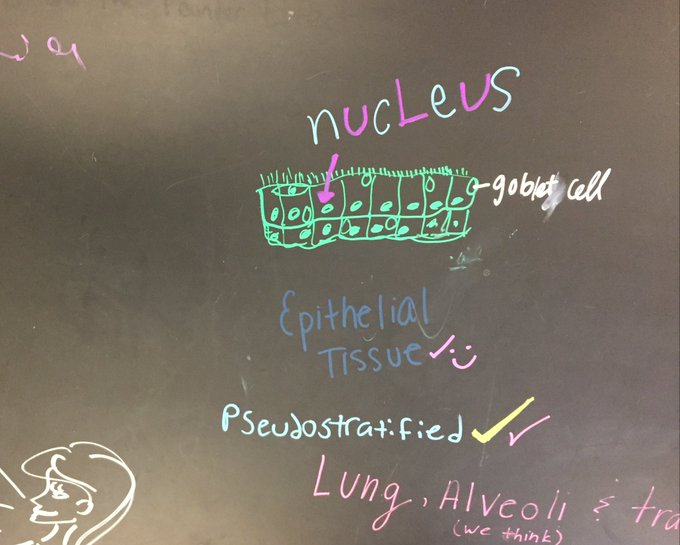 nucLeus
goblet cell
Epithelial
Tissue
Pseudostratified
Lung, Alveoli &
(we think)